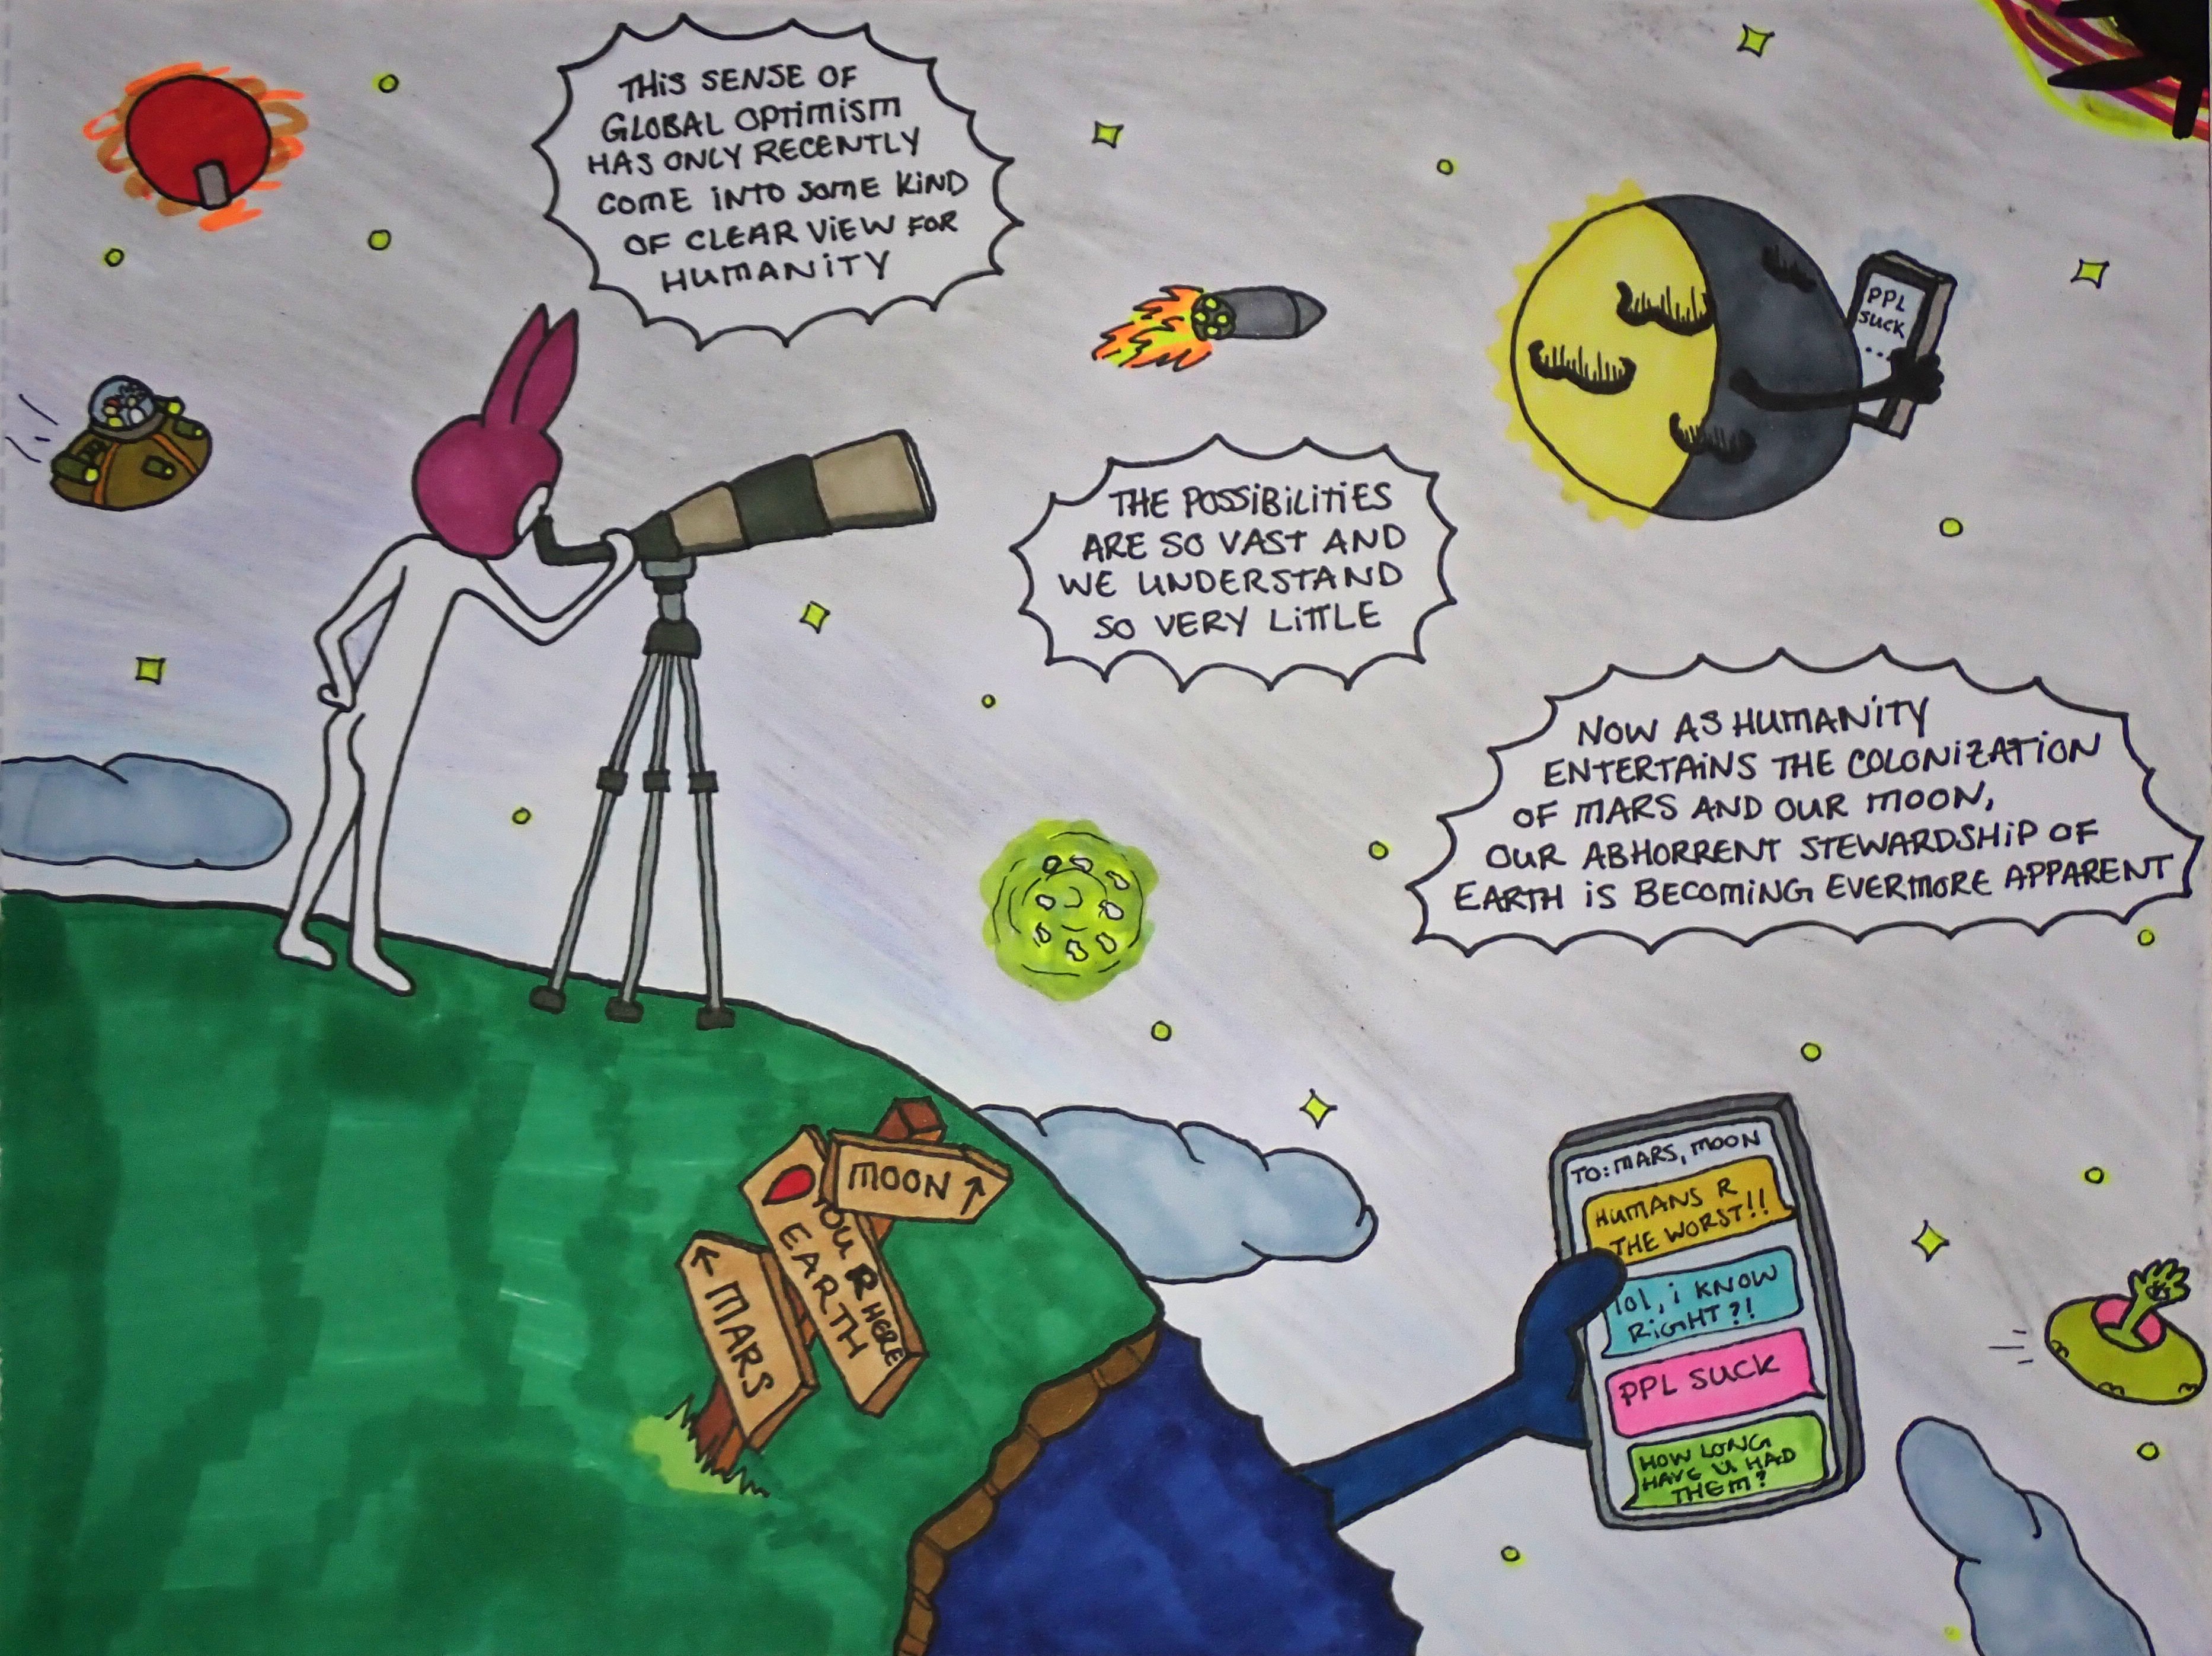 THiS SENSE OF
GLOBAL OPTiMiSM
HAS ONLY RECENTLY
COME iNTO SOME KiND
OF CLEAR ViEW FOR
HUMANiTY
PPL
SUCK
...
THE POSSiBiLiTiES
ARE SO VAST AND
WE UNDERSTAND
SO VERY LiTTLE
NOW AS HUMANiTY
ENTERTAiNS THE COLONiZATiON
OF MARS AND OUR MOON,
OUR ABHORRENT STEWARDSHiP OF
EARTH iS BECOMiNG EVERMORE APPARENT
MOON ↑
YOU R HERE
EARTH
← MARS
TO: MARS, MOON
HUMANS R
THE WORST!!
lol, i KNOW
RiGHT?!
PPL SUCK
HOW LONG
HAVE U HAD
THEM?